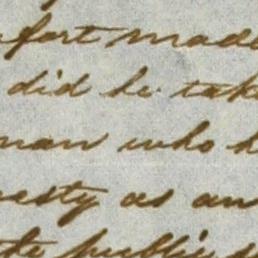 fort made
did he take
man who h
esty as an
public